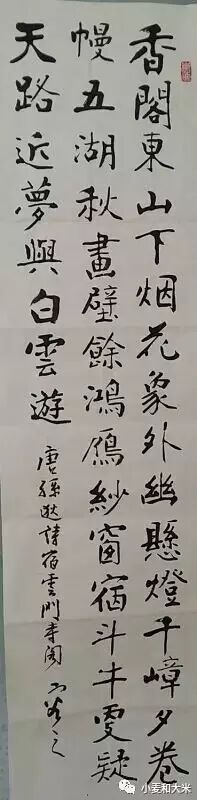 香閣東山下烟花象外幽懸燈千嶂夕卷
幔五湖秋畫壁餘鴻鴈紗窗宿斗牛更疑
天路近夢與白雲遊
唐孫逖詩宿雲門寺閣
小麦和大米